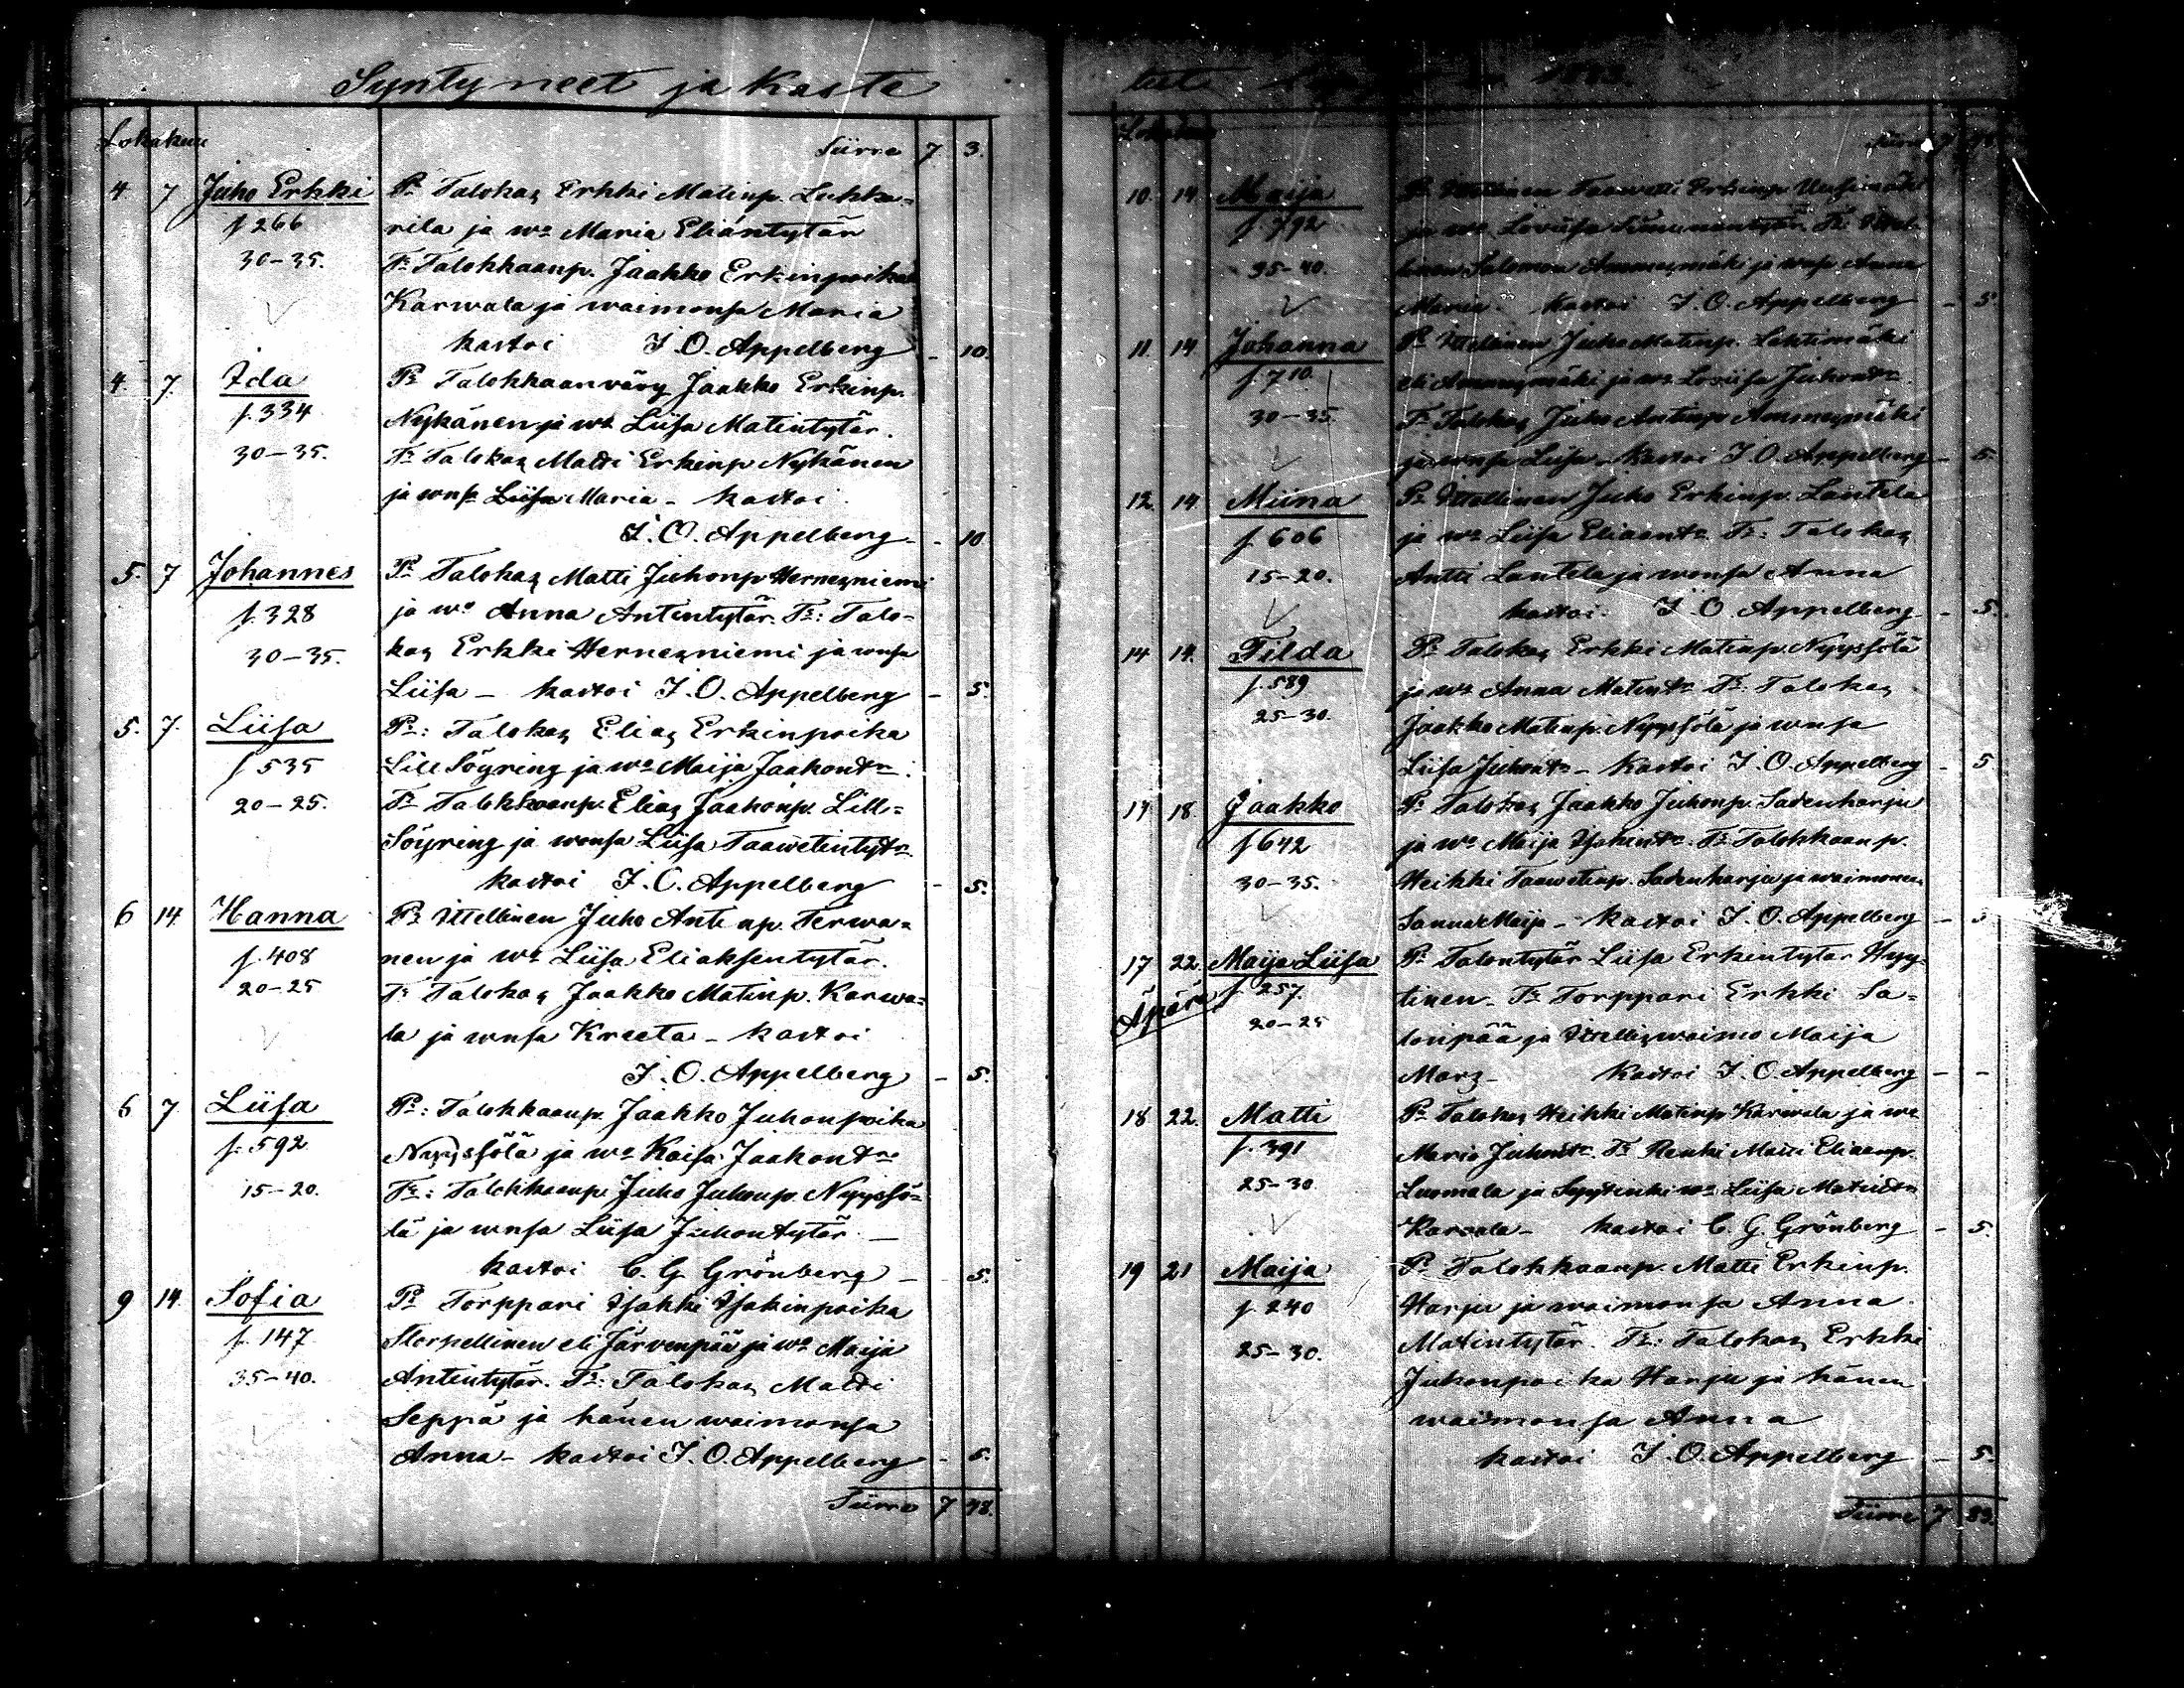 Syntyneet ja kaste
Lokakuu
Siirre 7 3.
4. 7 Juho Erkki Pr Talokas Erkki Matinp. Lukka=
f 266 rila ja wo Maria Eliäntytär
30-35. Tr Talokkaanp. Jaakko Erkinpoika
Karwala ja waimonsa Maria
kastoi J. O. Appelberg - 10.
4. 7. Ida Pr Talokkaanväry Jaakko Erkinp.
f. 334 Nykänen ja wo Liisa Matintytär.
30-35. Tr Talokas Matti Erkinp Nykänen
ja wnsa Liisa Maria - kastoi
J. O. Appelberg - 10
5. 7 Johannes Pr Talokas Matti Juhonp Hernesniemi
f. 328 ja wo Anna Antintytär. Tr: Talo=
30-35. kas Erkki Hernesniemi ja wnsa
Liisa - kastoi J. O. Appelberg - 5.
5. 7. Liisa Pr: Talokas Elias Erkinpoika
f 535 Lill Söyring ja wo Maija Jaakontr.
20-25. Tr Talokkaanp. Elias Jaakonp. Lill=
Söyring ja wonsa Liisa Taawetintytr.
kastoi J. O. Appelberg - 5.
6 14. Hanna Pr Ittellinen Juho Antinp. Terwa=
f. 408 nen ja wo Liisa Eliaksentytär.
20-25 Tr Talokas Jaakko Matinp. Karwa=
la ja wnsa Kreeta - kastoi
J. O. Appelberg - 5.
6 7. Liisa Pr: Talokkaanp. Jaakko Juhonpoika
f. 592 Nyyssölä ja wo Kaisa Jaakontr
15-20. Tr: Talokkaanp. Juho Juhonp. Nyyssö=
lä ja wnsa Liisa Juhontytär. -
kastoi C. G. Grönberg - 5.
9 14. Sofia Pr Torppari Isakki Isakinpoika
f. 147 Storpellinen eli Järvenpää ja wo Maija
35-40. Antintytär. Tr: Talokas Matti
Seppä ja hänen waimonsa
Anna - kastoi J. O. Appelberg - 5.
Siirre 7 48.
tut 1883.
Lokakuu
Siirre 7 48.
10. 14 Maija Pr Ittellinen Taawetti Erkinp Uusimäki
f. 792 ja wo Lovisa Tr: Ittel-
35-40. linen Salomon Ammesmäki ja wnsa Anna
Maria - kastoi J. O. Appelberg - 5
11. 14 Johanna Pr Ittelinen Juho Matinp. Lahtimäki
f. 710. eli Ammesmäki ja wo Loviisa Juhontr.
30-35 Tr Talokas Juho Antinp Ammesmäki
ja wnsa Liisa - kastoi J. O. Appelberg - 5.
12. 14 Miina Pr Ittellinen Juho Erkinp. Lantela
f. 606 ja wo Liisa Eliaantr. Tr: Talokas
15-20. Antti Lantela ja wonsa Anna
kastoi. J. O. Appelberg - 5.
14 14. Tilda Pr Talokas Erkki Matinp. Nyyssölä
f. 589 ja wo Anna Matintr Tr: Talokas
25-30. Jaakko Matinp. Nyyssölä ja wnsa
Liisa Juhontr - Kastoi J. O. Appelberg - 5
17 18. Jaakko Pr Talokas Jaakko Juhonp. Sadenharju
f 642 ja wo Maija Isakintr. Tr Talokkaanp.
30-35. Heikki Taawetinp. Sadenharju ja waimonsa
Sanna Maija - kastoi J. O. Appelberg - 5
17 22. Maija Liisa Pr Talontytär Liisa Erkintytär Hyy-
Äpärä f. 257. tinen - Tr Torppari Erkki Sa=
20-25 lonpää ja Ittelliswaimo Maija
Mars - Kastoi J. O. Appelberg - -
18 22. Matti Pr Talokas Heikki Matinp Karwala ja wo
f. 391 Maria Juhontr. Tr Renki Matti Eliaanp.
25-30 Luomala ja Syytinki wo Liisa Matintr
Karvala - kastoi C. G. Grönberg - 5.
19 21 Maija Pr Talokkaanp. Matti Erkinp.
f. 240 Harju ja waimonsa Anna
25-30. Matintytär. Tr: Talokas Erkki
Juhonpoika Harju ja hänen
waimonsa Anna
kastoi J. O. Appelberg - 5.
Siirre 7 83.